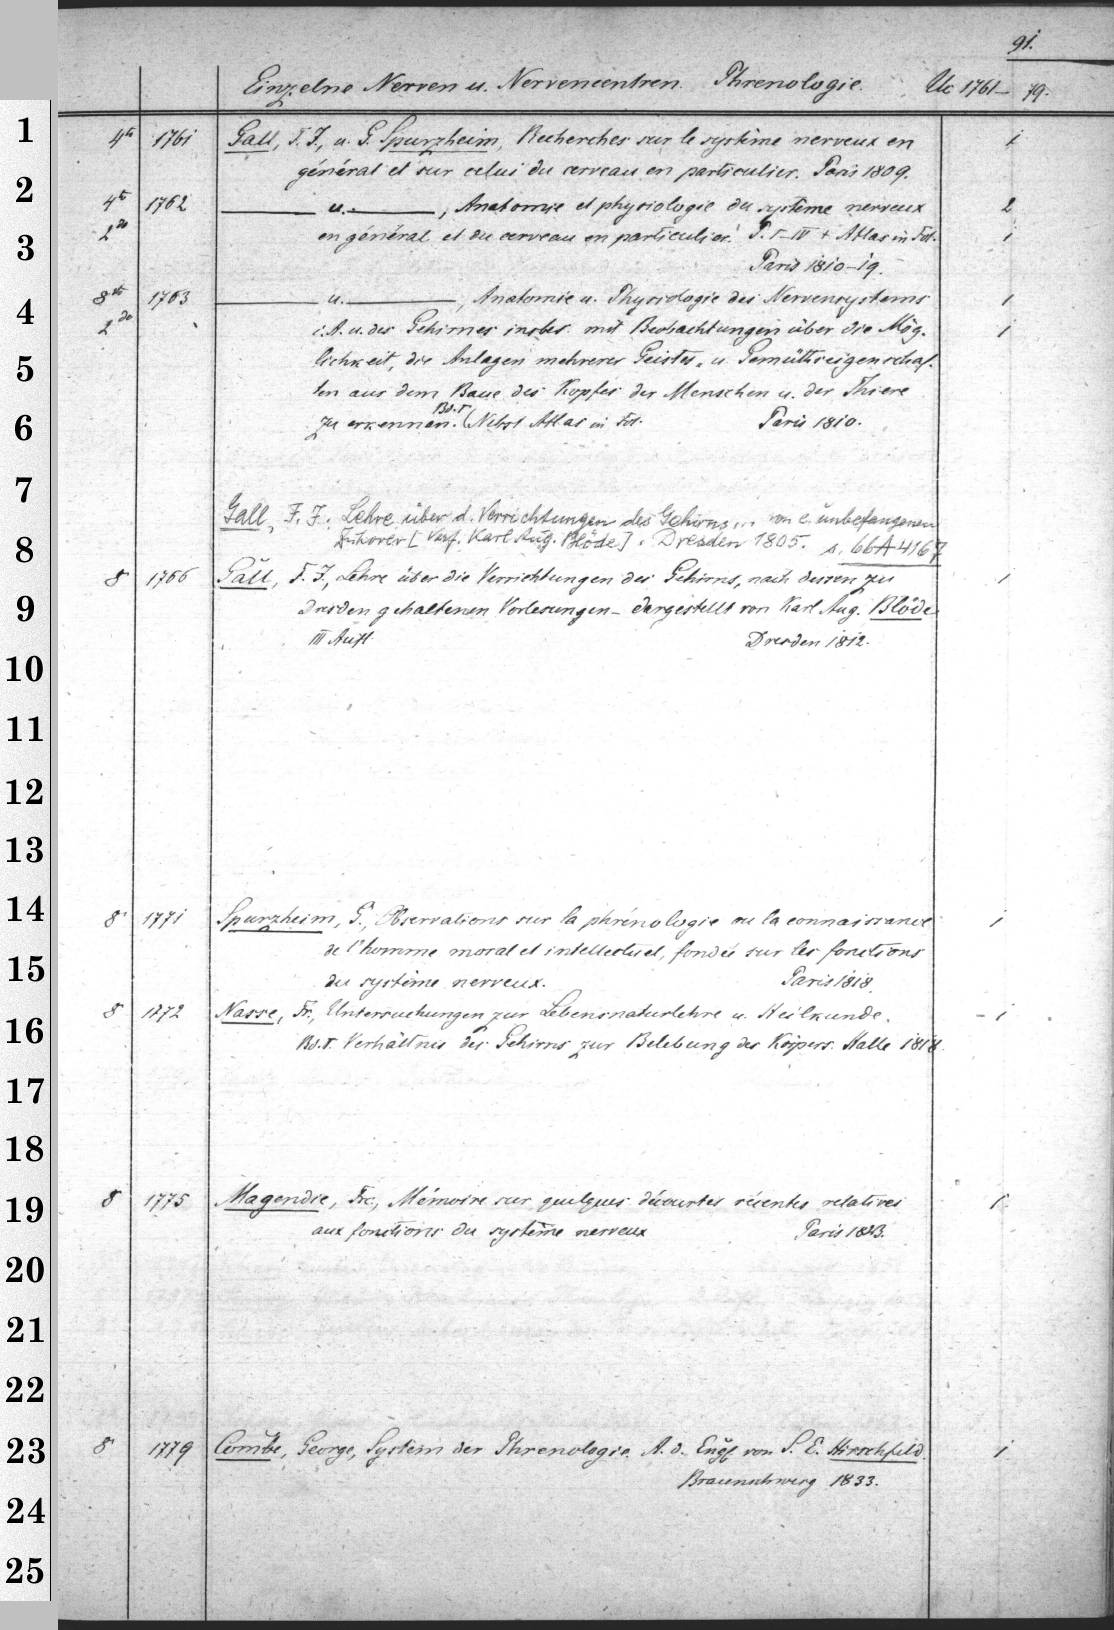 91.
Einzelne Nerven u. Nervencentren. Phrenologie. Uc 1761–79.
1
4to 1761 Gall, F. J., u. G. Spurzheim, Recherches sur le système nerveux en 1
général et sur celui du cerveau en particulier. Paris 1809.
2
4to 1762 ——— u. ———, Anatomie et physiologie du système nerveux 2
3
2do en général et du cerveau en particulier. P. I–IV + Atlas in Fol. 1
Paris 1810–19.
4
8vo 1763 ——— u. ———, Anatomie u. Physiologie des Nervensystems 1
2do i. A. u. des Gehirnes insbes. mit Beobachtungen über die Mög- 1
5
lichkeit, die Anlagen mehrerer Geistes- u. Gemüthseigenschaf-
ten aus dem Baue des Kopfes der Menschen u. der Thiere
6
zu erkennen. Bd. I (Nebst Atlas in Fol. Paris 1810.
7
Gall, F. J., Lehre über d. Verrichtungen des Gehirns... von e. unbefangenen
8
Zuhörer [Verf. Karl Aug. Blöde]. Dresden 1805. s. 66A4167
8 1766 Gall, F. J., Lehre über die Verrichtungen des Gehirns, nach dessen zu 1
9
Dresden gehaltenen Vorlesungen – dargestellt von Karl Aug. Blöde
III Aufl. Dresden 1812.
10
11
12
13
14
8 1771 Spurzheim, G., Observations sur la phrénologie ou la connaissance 1
de l'homme moral et intellectuel, fondée sur les fonctions
15
du système nerveux. Paris 1818.
8 1772 Nasse, Fr., Untersuchungen zur Lebensnaturlehre u. Heilkunde. – 1
16
Bd. I. Verhältnis des Gehirns zur Belebung des Körpers. Halle 1818.
17
18
19
8 1775 Magendie, Frç., Mémoire sur quelques découvertes récentes relatives 1
aux fonctions du système nerveux Paris 1823.
20
21
22
23
8 1779 Combe, George, System der Phrenologie. A. d. Engl. von S. E. Hirschfeld. 1
Braunschweig 1833.
24
25